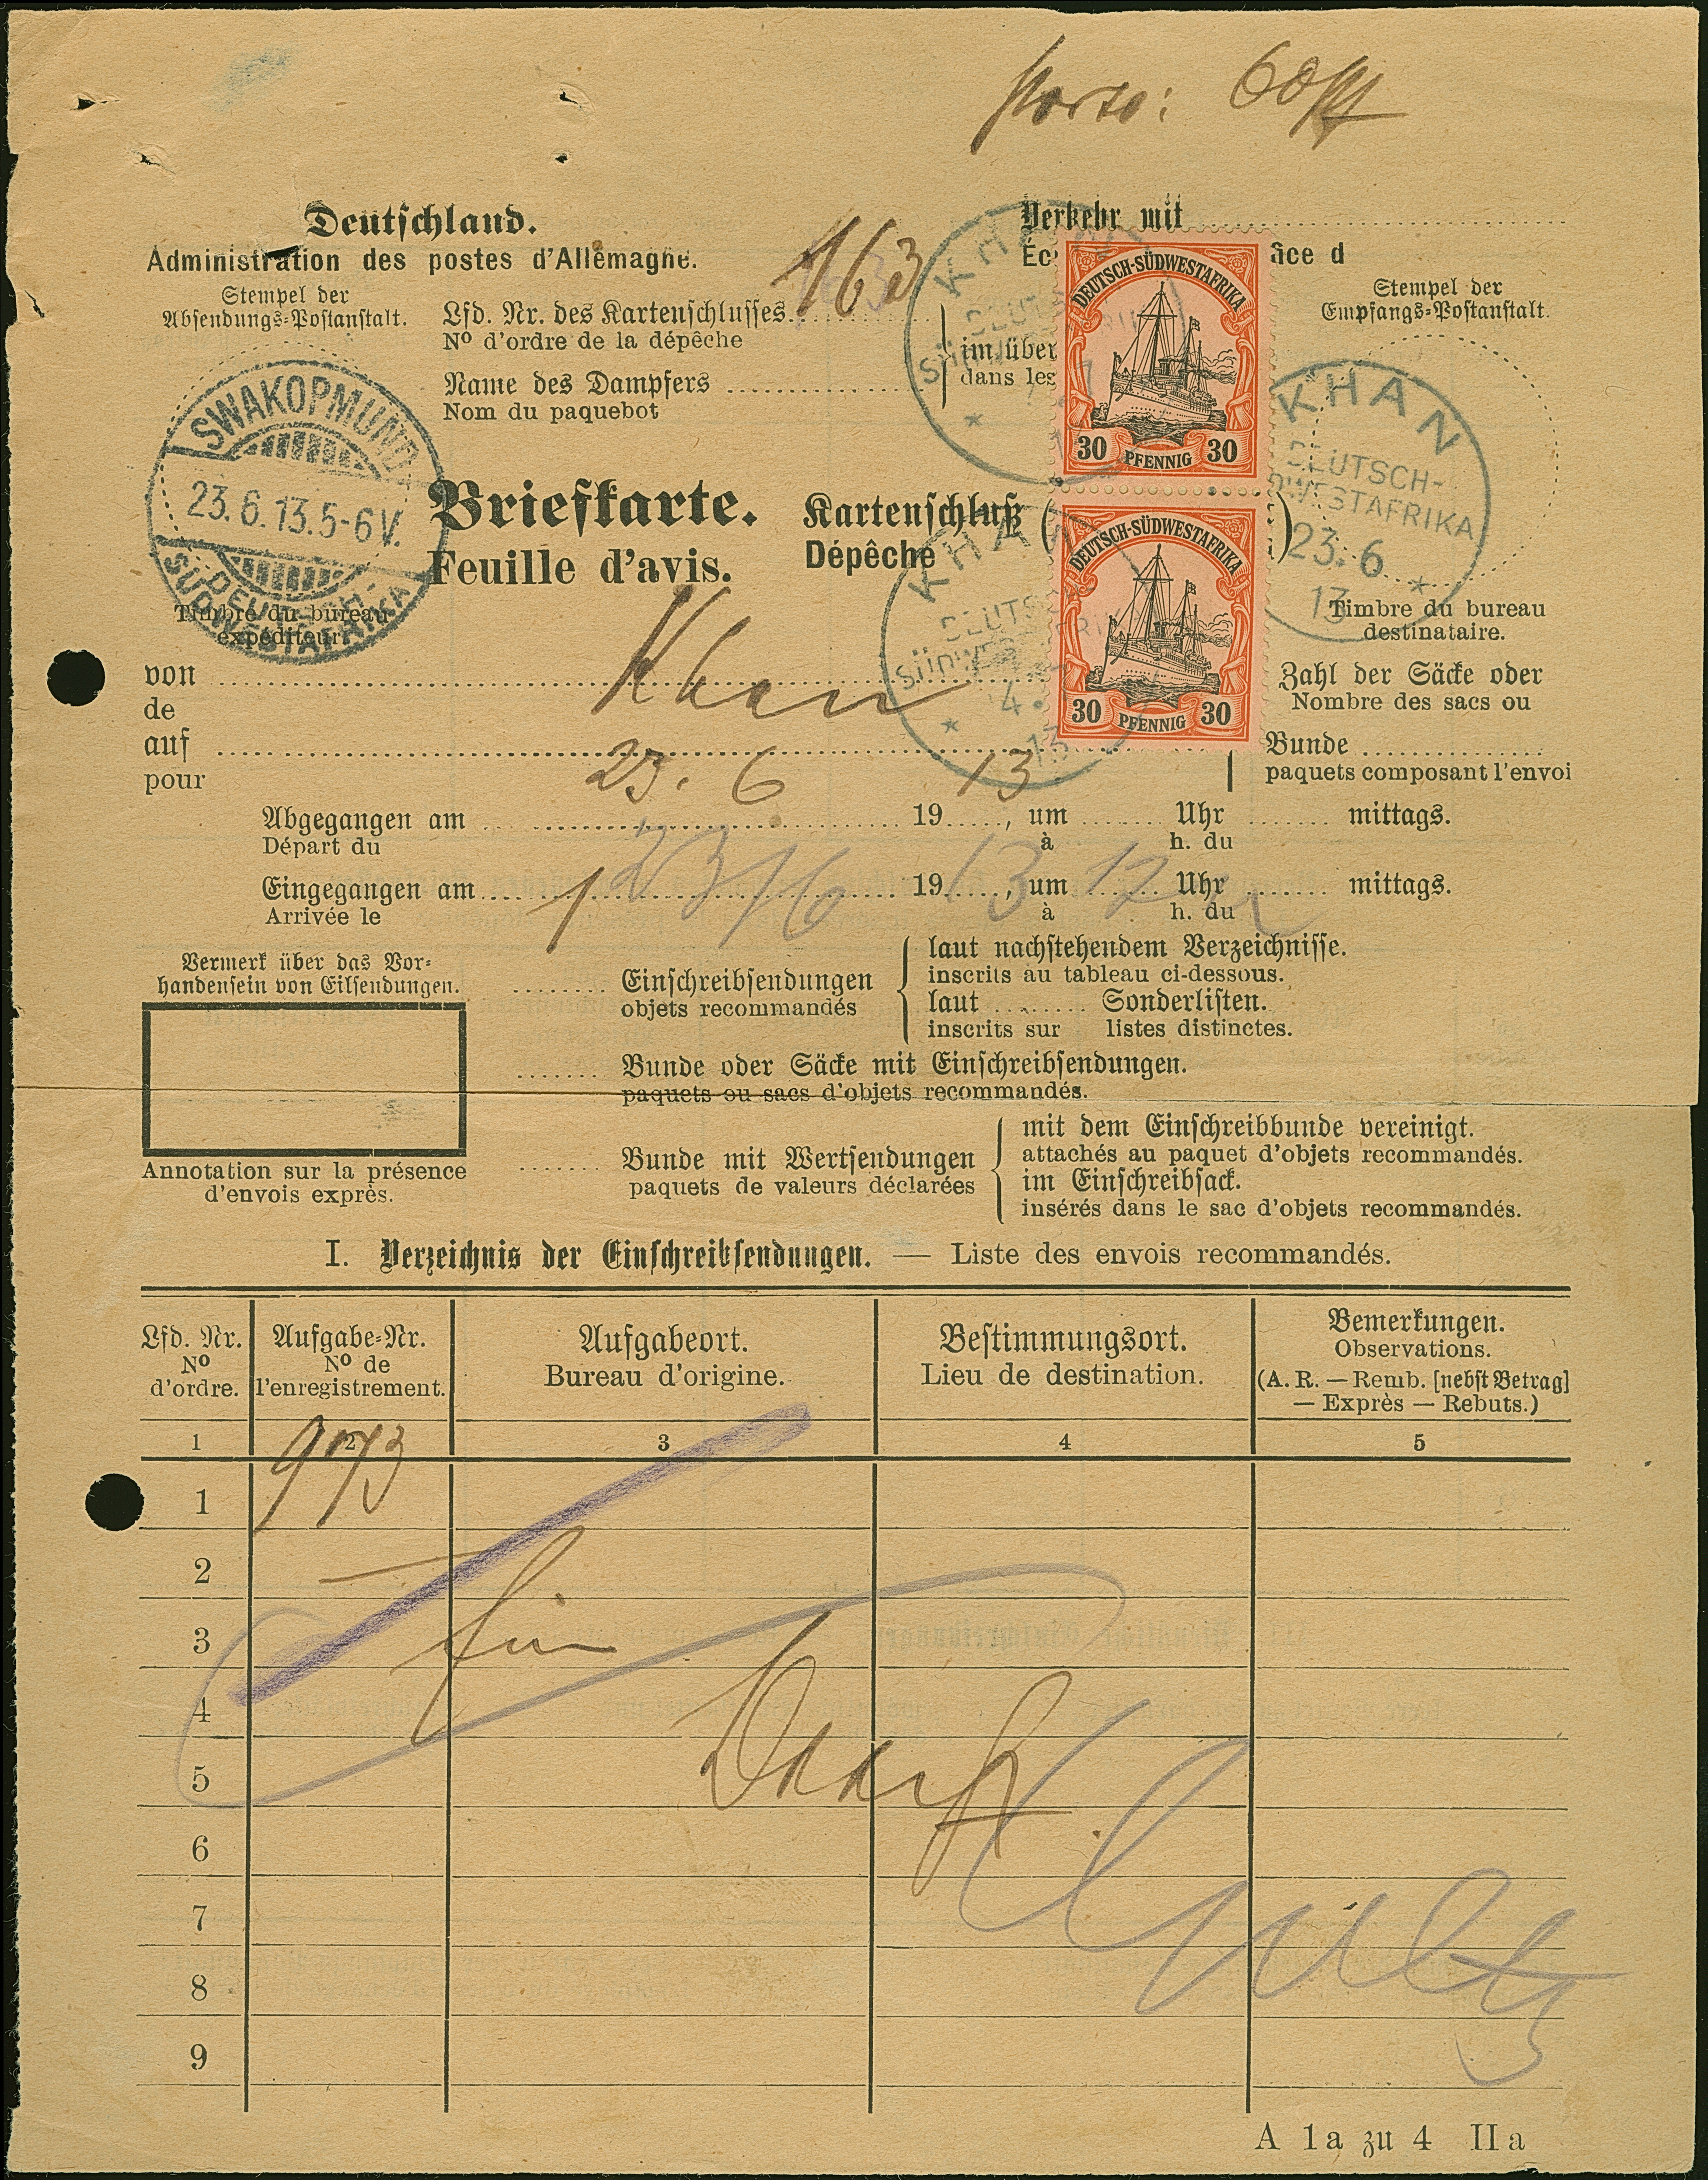 Porto: 60 Pf
Deutschland.
Administration des postes d'Allemagne.
Verkehr mit
Éc
fice d
Stempel der
Absendungs-Postanstalt.
Lfd. Nr. des Kartenschlusses 163
No d'ordre de la dépêche
Name des Dampfers
Nom du paquebot
im über
dans les
Stempel der
Empfangs-Postanstalt.
KHAN
DEUTSCH-SÜDWESTAFRIKA
30 PFENNIG 30
SWAKOPMUND
23.6.13.5-6V.
DEUTSCH-
SÜDWESTAFRIKA
KHAN
DEUTSCH-
SÜDWESTAFRIKA
23.6
13
Briefkarte.
Feuille d'avis.
Kartenschluß (
)
Dépêche
KHAN
DEUTSCH-SÜDWESTAFRIKA
30 PFENNIG 30
Timbre du bureau
expéditeur.
Timbre du bureau
destinataire.
von
de
Khan
auf
pour
Zahl der Säcke oder
Nombre des sacs ou
Bunde
paquets composant l'envoi
Abgegangen am 23. 6 1913, um Uhr mittags.
Départ du à h. du
Eingegangen am 23/6 1913, um 12 Uhr mittags.
Arrivée le à h. du
Vermerk über das Vor-
handensein von Eilsendungen.
Annotation sur la présence
d'envois exprès.
Einschreibsendungen
objets recommandés
laut nachstehendem Verzeichnisse.
inscrits au tableau ci-dessous.
laut Sonderlisten.
inscrits sur listes distinctes.
Bunde oder Säcke mit Einschreibsendungen.
paquets ou sacs d'objets recommandés.
Bunde mit Wertsendungen
paquets de valeurs déclarées
mit dem Einschreibbunde vereinigt.
attachés au paquet d'objets recommandés.
im Einschreibsack.
insérés dans le sac d'objets recommandés.
I. Verzeichnis der Einschreibsendungen. — Liste des envois recommandés.
Lfd. Nr.
No
d'ordre.
Aufgabe-Nr.
No de
l'enregistrement.
Aufgabeort.
Bureau d'origine.
Bestimmungsort.
Lieu de destination.
Bemerkungen.
Observations.
(A. R. — Remb. [nebst Betrag]
— Exprès — Rebuts.)
1 2 3 4 5
1 973
2
3
4
5
6
7
8
9
A 1a zu 4 IIa